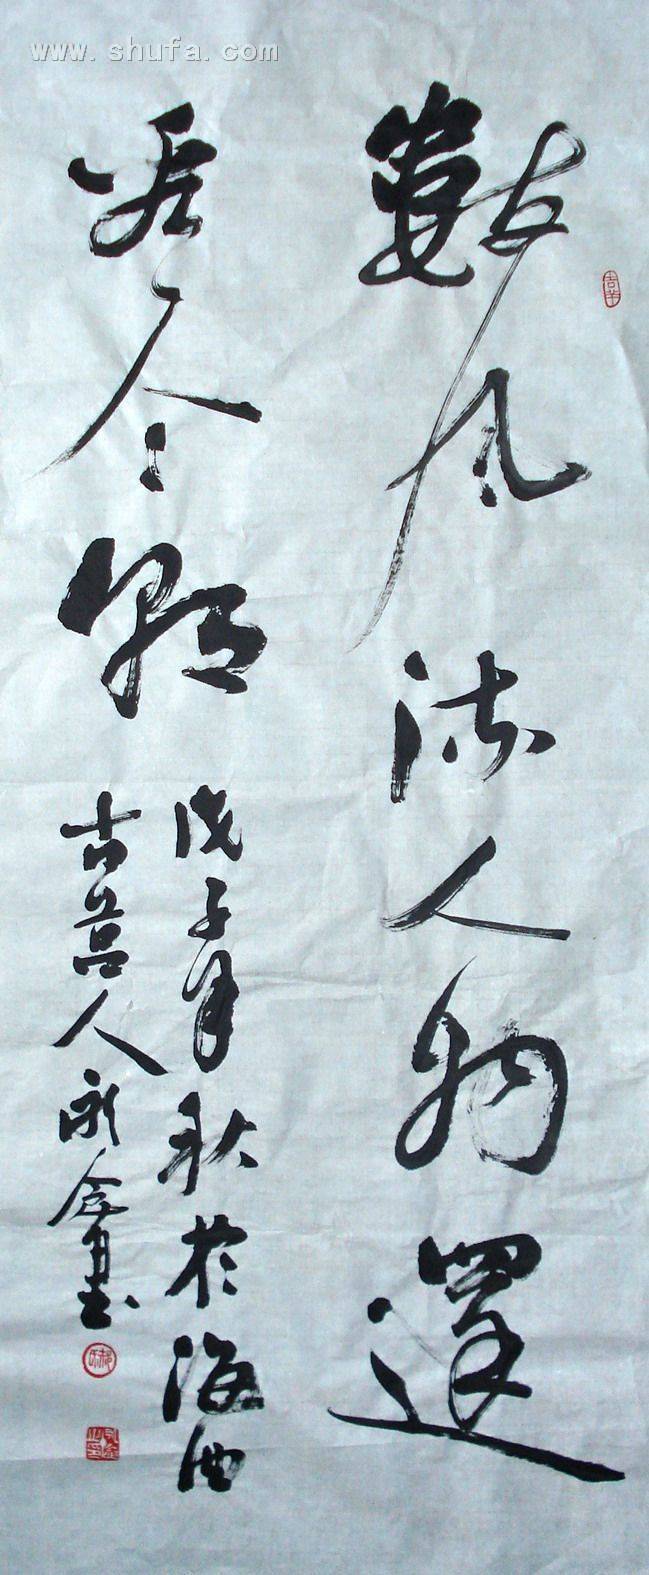 www.shufa.com
數風流人物還
看今朝
戊子年秋於海西
古莒人永金書